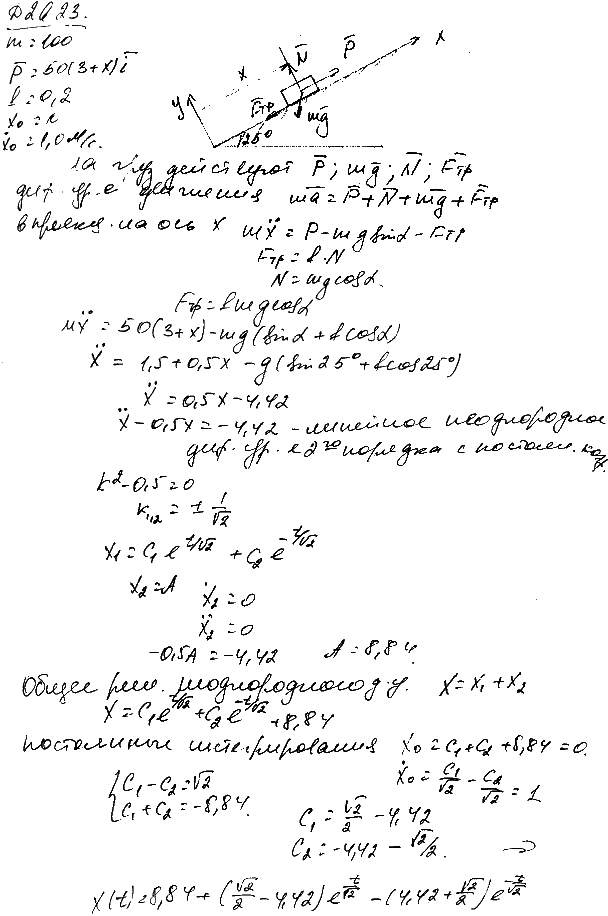 Д2Б 23.
m = 100
P̄ = 50(3+x)ī
f = 0,2
ẋ₀ = 1,0 м/с.
y x N̄ P̄ x
F̄тр mḡ
25°
На груз действуют P̄; mḡ; N̄; F̄тр
диф. ур. е движения mā = P̄ + N̄ + mḡ + F̄тр
в проекц. на ось x mẍ = P - mg sinα - Fтр
Fтр = f·N
N = mg cosα.
Fтр = f mg cosα
mẍ = 50(3+x) - mg(sinα + f cosα)
ẍ = 1,5 + 0,5x - g(sin25° + f cos25°)
ẍ = 0,5x - 4,42
ẍ - 0,5x = -4,42 - линейное неоднородное
диф. ур. е 2го порядка с постоян. коэф.
k² - 0,5 = 0
k₁,₂ = ± 1/√2
x₁ = C₁e^(t/√2) + C₂e^(-t/√2)
x₂ = A ẋ₂ = 0
ẍ₂ = 0
-0,5A = -4,42 A = 8,84.
Общее реш. неоднородного д.у. x = x₁ + x₂
x = C₁e^(t/√2) + C₂e^(-t/√2) + 8,84
постоянные интегрирования x₀ = C₁ + C₂ + 8,84 = 0.
{C₁ - C₂ = √2 ẋ₀ = C₁/√2 - C₂/√2 = 1
{C₁ + C₂ = -8,84. C₁ = √2/2 - 4,42
C₂ = -4,42 - √2/2. ⇒
x(t) = 8,84 + (√2/2 - 4,42)e^(t/√2) - (4,42 + √2/2)e^(-t/√2)